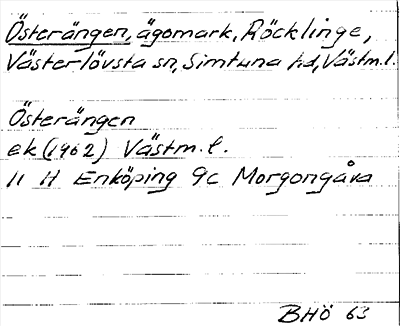 Österängen, ägomark, Röcklinge,
Västerlövsta sn, Simtuna hd, Västm.l.
Österängen
ek (1962) Västm. l.
11 H Enköping 9c Morgongåva
BHÖ 63